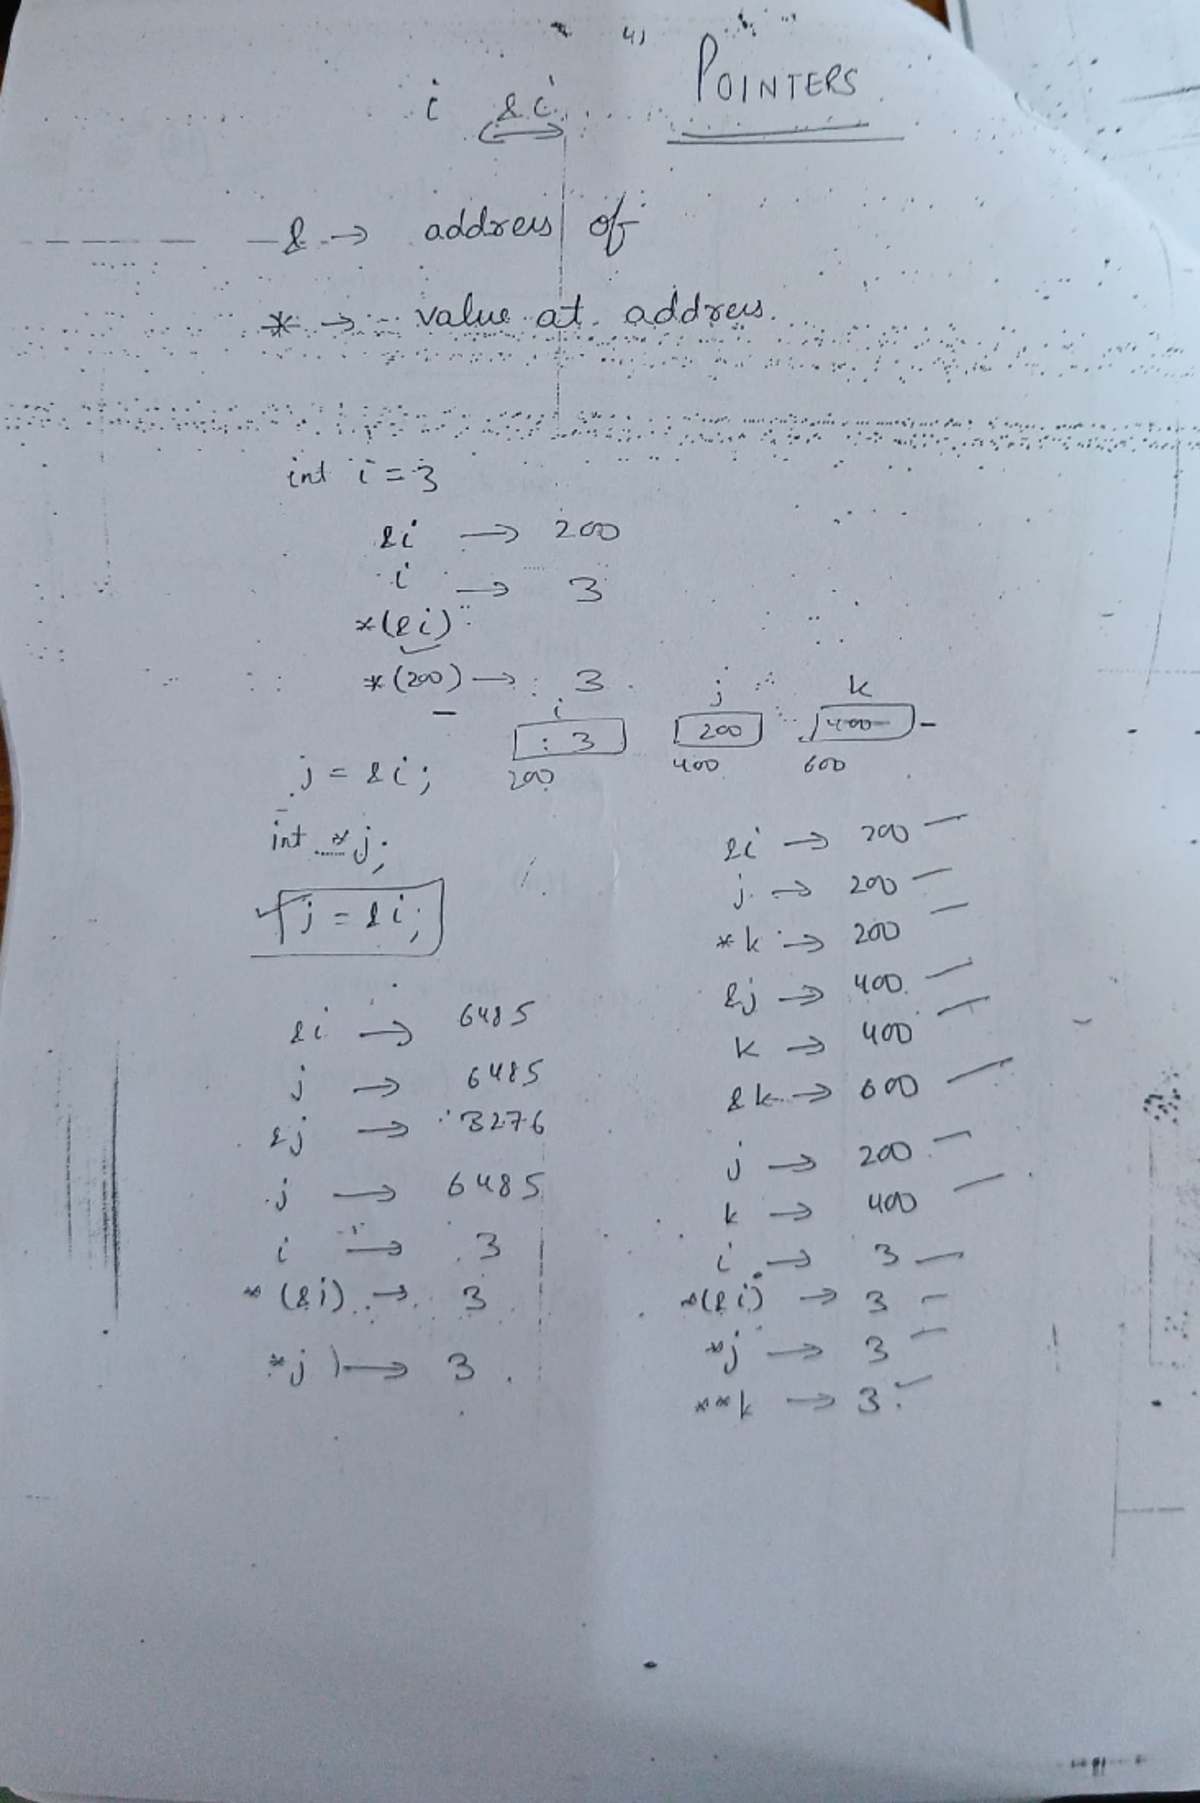 4)
POINTERS
i &i
& → address of
* → value at address.
int i = 3
&i → 200
i → 3
*(&i)
*(200) → 3
i j k
3 200 400
200 400 600
j = &i;
int *j;
j = &i;
&i → 6485
j → 6485
&j → 3276
j → 6485
i → 3
*(&i) → 3
*j → 3
&i → 200
j → 200
*k → 200
&j → 400
k → 400
&k → 600
j → 200
k → 400
i → 3
*(&i) → 3
*j → 3
**k → 3